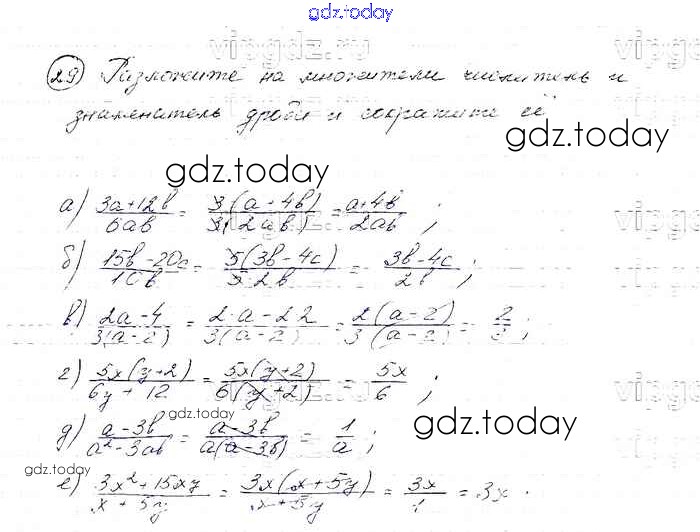 gdz.today
29) Разложите на множители числитель и
знаменатель дроби и сократите её
gdz.today
а) (3a+12b)/(6ab) = (3(a-4b))/(3(2ab)) = (a+4b)/(2ab) ;
б) (15b-20c)/(10b) = (5(3b-4c))/(5·2b) = (3b-4c)/(2b) ;
в) (2a-4)/(3(a-2)) = (2·a-2·2)/(3(a-2)) = (2(a-2))/(3(a-2)) = 2/3 ;
г) (5x(y+2))/(6y+12) = (5x(y+2))/(6(y+2)) = 5x/6 ;
gdz.today
д) (a-3b)/(a²-3ab) = (a-3b)/(a(a-3b)) = 1/a ;
gdz.today
gdz.today
е) (3x²+15xy)/(x+5y) = (3x(x+5y))/(x+5y) = 3x/1 = 3x.